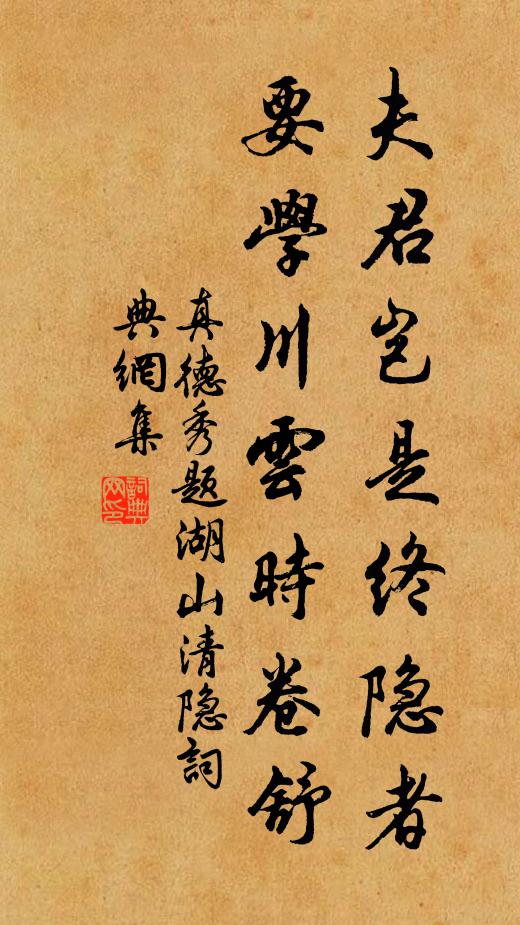 夫君岂是终隐者
要學川雲時卷舒
真德秀题湖山清隐詞
典網集
詞典
网印